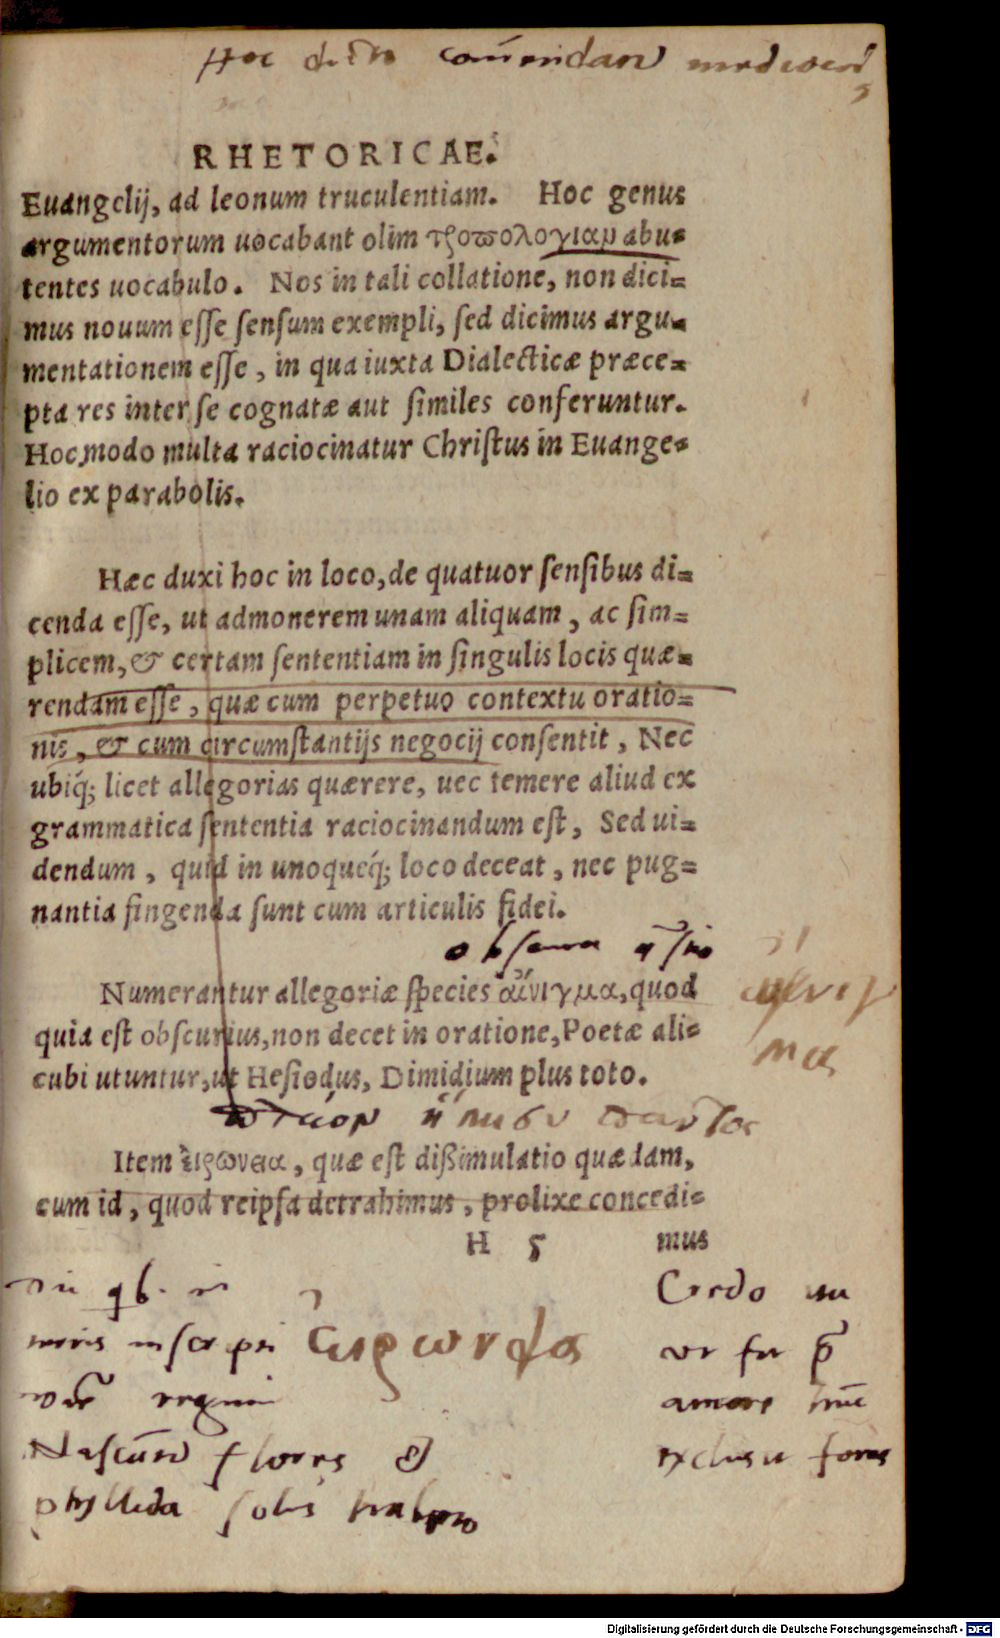 Hoc
RHETORICAE.
Euangelij, ad leonum truculentiam. Hoc genus
argumentorum uocabant olim τροπολογίαμ abu-
tentes uocabulo. Nos in tali collatione, non dici-
mus nouum esse sensum exempli, sed dicimus argu-
mentationem esse, in qua iuxta Dialecticæ præce-
pta res inter se cognatæ aut similes conferuntur.
Hoc modo multa raciocinatur Christus in Euange-
lio ex parabolis.
Hæc duxi hoc in loco, de quatuor sensibus di-
cenda esse, ut admonerem unam aliquam, ac sim-
plicem, & certam sententiam in singulis locis quæ-
rendam esse, quæ cum perpetuo contextu oratio-
nis, & cum circumstantijs negocij consentit, Nec
ubiq́; licet allegorias quærere, uec temere aliud ex
grammatica sententia raciocinandum est, Sed ui-
dendum, quid in unoqueq́; loco deceat, nec pug-
nantia fingenda sunt cum articulis fidei.
obscura
Numerantur allegoriæ species αἴνιγμα, quod
quia est obscurius, non decet in oratione, Poetæ ali-
cubi utuntur, ut Hesiodus, Dimidium plus toto.
ἥμισυ παντος
Item εἰρωνεια, quæ est dißimulatio quædam,
cum id, quod reipsa detrahimus, prolixe concedi-
H 5 mus
Nascūtur flores &
phyllida solus habeto
Credo
amore hūc
exclusit foras